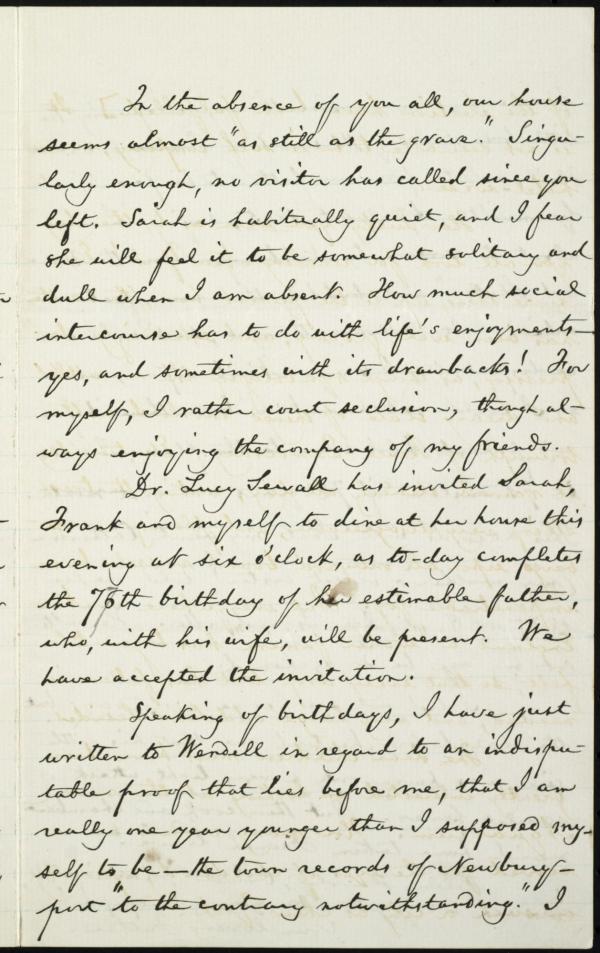 In the absence of you all, our house
seems almost "as still as the grave." Singu-
larly enough, no visitor has called since you
left. Sarah is habitually quiet, and I fear
she will feel it to be somewhat solitary and
dull when I am absent. How much social
intercourse has to do with life's enjoyments—
yes, and sometimes with its drawbacks! For
myself, I rather court seclusion, though al-
ways enjoying the company of my friends.
Dr. Lucy Sewall has invited Sarah,
Frank and myself to dine at her house this
evening at six o'clock, as to-day completes
the 76th birthday of her estimable father,
who, with his wife, will be present. We
have accepted the invitation.
Speaking of birthdays, I have just
written to Wendell in regard to an indispu-
table proof that lies before me, that I am
really one year younger than I supposed my-
self to be—the town records of Newbury-
port "to the contrary notwithstanding." I